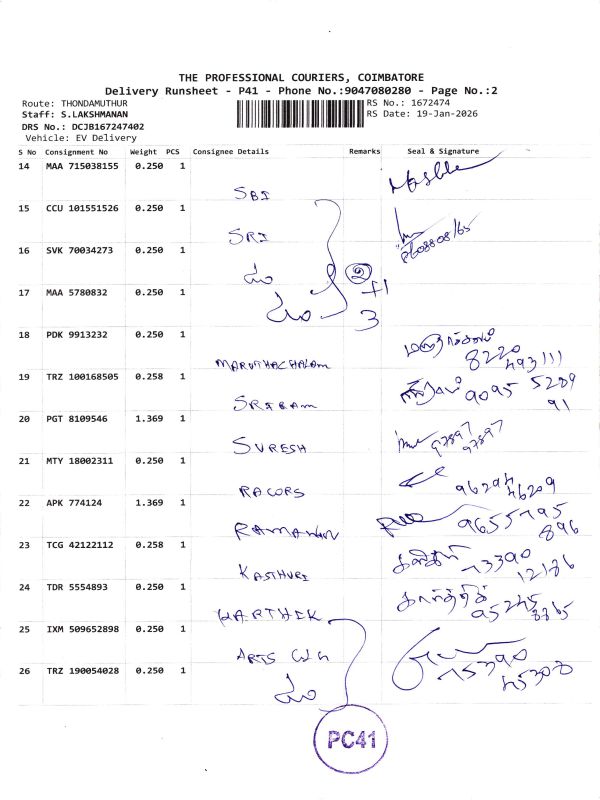 THE PROFESSIONAL COURIERS, COIMBATORE
Delivery Runsheet - P41 - Phone No.:9047080280 - Page No.:2
Route: THONDAMUTHUR
RS No.: 1672474
Staff: S.LAKSHMANAN
RS Date: 19-Jan-2026
DRS No.: DCJB167247402
Vehicle: EV Delivery
S No Consignment No Weight PCS Consignee Details Remarks Seal & Signature
14 MAA 715038155 0.250 1
SBI
15 CCU 101551526 0.250 1
SRI
16 SVK 70034273 0.250 1
2
17 MAA 5780832 0.250 1
+1
3
18 PDK 9913232 0.250 1
MARUTHACHALAM
8220
493111
19 TRZ 100168505 0.258 1
SRIRAM
9095 5289
91
20 PGT 8109546 1.369 1
SURESH
97897
97897
21 MTY 18002311 0.250 1
96294
46209
22 APK 774124 1.369 1
9655795
896
23 TCG 42122112 0.258 1
KASTHURI
73390
12186
24 TDR 5554893 0.250 1
KARTHIK
கார்த்திக்
25 IXM 509652898 0.250 1
ARTS
75390
45308
26 TRZ 190054028 0.250 1
PC41